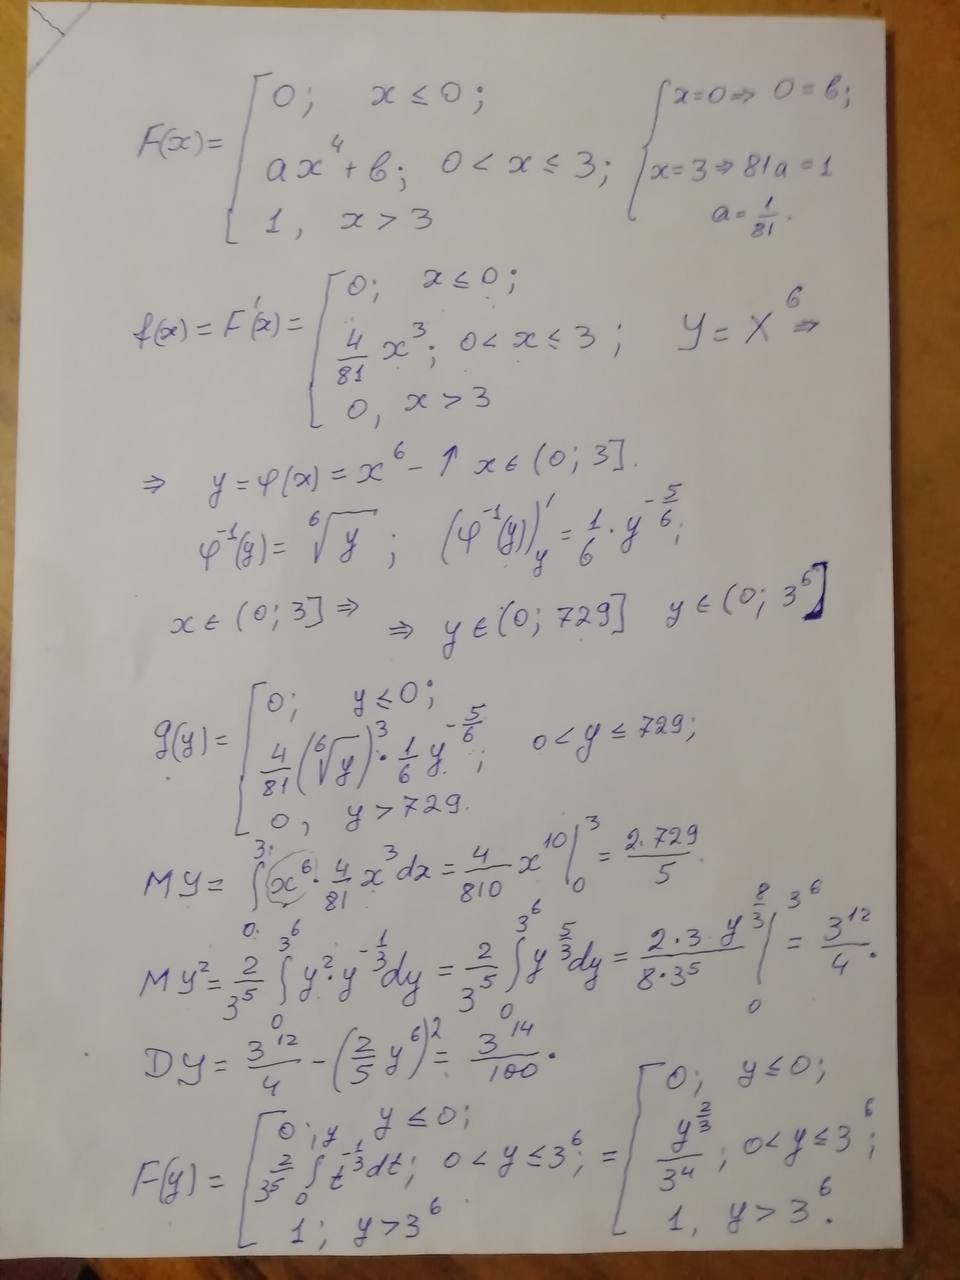 F(x) = [ 0; x ≤ 0; { x=0 ⇒ 0 = в;
ax⁴ + в; 0 < x ≤ 3; x = 3 ⇒ 81a = 1
1, x > 3 a = 1/81.
f(x) = F'(x) = [ 0; x ≤ 0;
4/81 x³; 0 < x ≤ 3; Y = X⁶ ⇒
0, x > 3
⇒ y = φ(x) = x⁶ - ↑ x ∈ (0; 3].
φ⁻¹(y) = ⁶√y; (φ⁻¹(y))'y = 1/6 · y^(-5/6);
x ∈ (0; 3] ⇒ ⇒ y ∈ (0; 729] y ∈ (0; 3⁶]
g(y) = [ 0; y ≤ 0;
4/81 (⁶√y)³ · 1/6 y^(-5/6); 0 < y ≤ 729;
0, y > 729.
MY = ∫₀³ x⁶ · 4/81 x³ dx = 4/810 x¹⁰ |₀³ = 2·729/5.
MY² = 2/3⁵ ∫₀^(3⁶) y² · y^(-1/3) dy = 2/3⁵ ∫₀^(3⁶) y^(5/3) dy = 2·3 y^(8/3)/(8·3⁵) |₀^(3⁶) = 3¹²/4.
DY = 3¹²/4 - (2/5 y⁶)² = 3¹⁴/100.
F(y) = [ 0; y ≤ 0; = [ 0; y ≤ 0;
2/3⁵ ∫₀^y t^(-1/3) dt; 0 < y ≤ 3⁶; y^(2/3)/3⁴; 0 < y ≤ 3⁶;
1; y > 3⁶ 1, y > 3⁶.